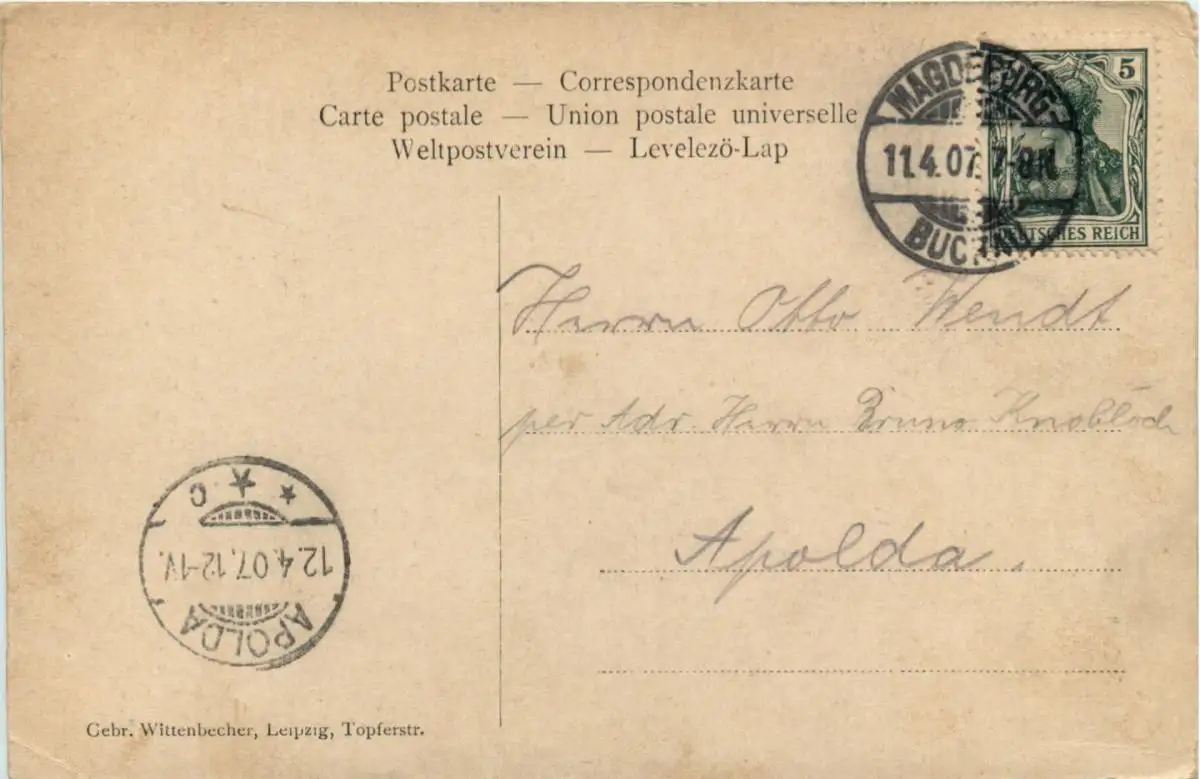 Postkarte — Correspondenzkarte
Carte postale — Union postale universelle
Weltpostverein — Levelezö-Lap
MAGDEBURG-
11.4.07. 7-8N.
BUCKAU
5
DEUTSCHES REICH
Herrn Otto Wendt
per Adr. Herrn Bruno Knobloch
Apolda.
APOLDA
12.4.07. 12-1V.
* * C
Gebr. Wittenbecher, Leipzig, Topferstr.